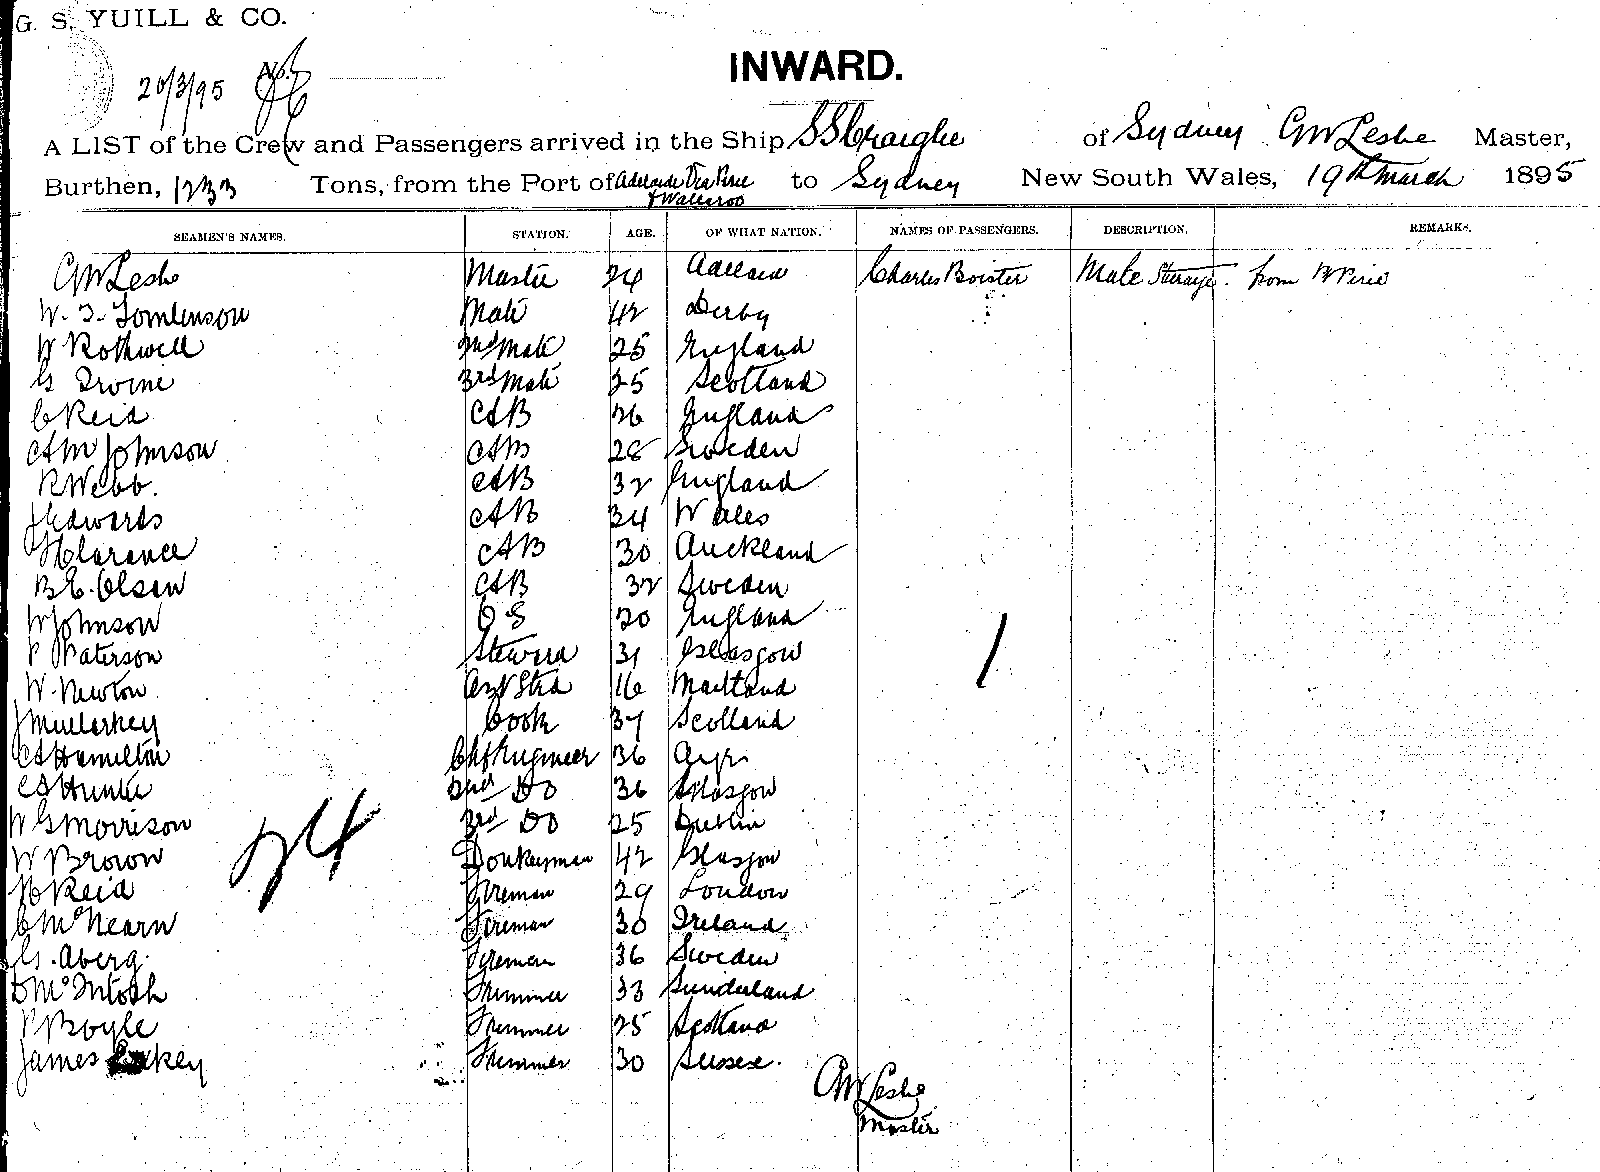 G. S. YUILL & CO.
20/3/95
INWARD.
A LIST of the Crew and Passengers arrived in the Ship SS Craigie of Sydney GW Leslie Master,
Burthen, 1233 Tons, from the Port of Adelaide Via Pirie & Wallaroo to Sydney New South Wales, 19th March 1895
SEAMEN'S NAMES. STATION. AGE. OF WHAT NATION. NAMES OF PASSENGERS. DESCRIPTION. REMARKS.
GW Leslie Master Charles Boister Male Steerage. from Pt Pirie
W. T. Tomlenson Mate 42 Derby
W Rothwell 2nd Mate 25 England
G Irvine 3rd Mate 25 Scotland
C Reid AB 26 England
A M Johnson AB 28 Sweden
R Webb. AB 32 England
J Edwards AB 34 Wales
H Clarence AB 30 Auckland
B E. Olsen AB 32 Sweden
W Johnson O S 20 England
P Paterson Steward 31 Glasgow
W. Newton Asst Strd 16 Maitland
J Mullarkey Cook 37 Scotland
A Hamilton Chf Engineer 36 Ayr
A Hunter 2nd DO 36 Glasgow
W G Morrison 3rd DO 25 Dublin
W Brown Donkeyman 42 Glasgow
24
Reid Fireman 29 London
C McNearn Fireman 30 Ireland
G. Aberg. Fireman 36 Sweden
D McIntosh Trimmer 33 Sunderland
P Boyle Trimmer 25 Scotland
James Trimmer 30 Sussex.
1
GW Leslie
Master